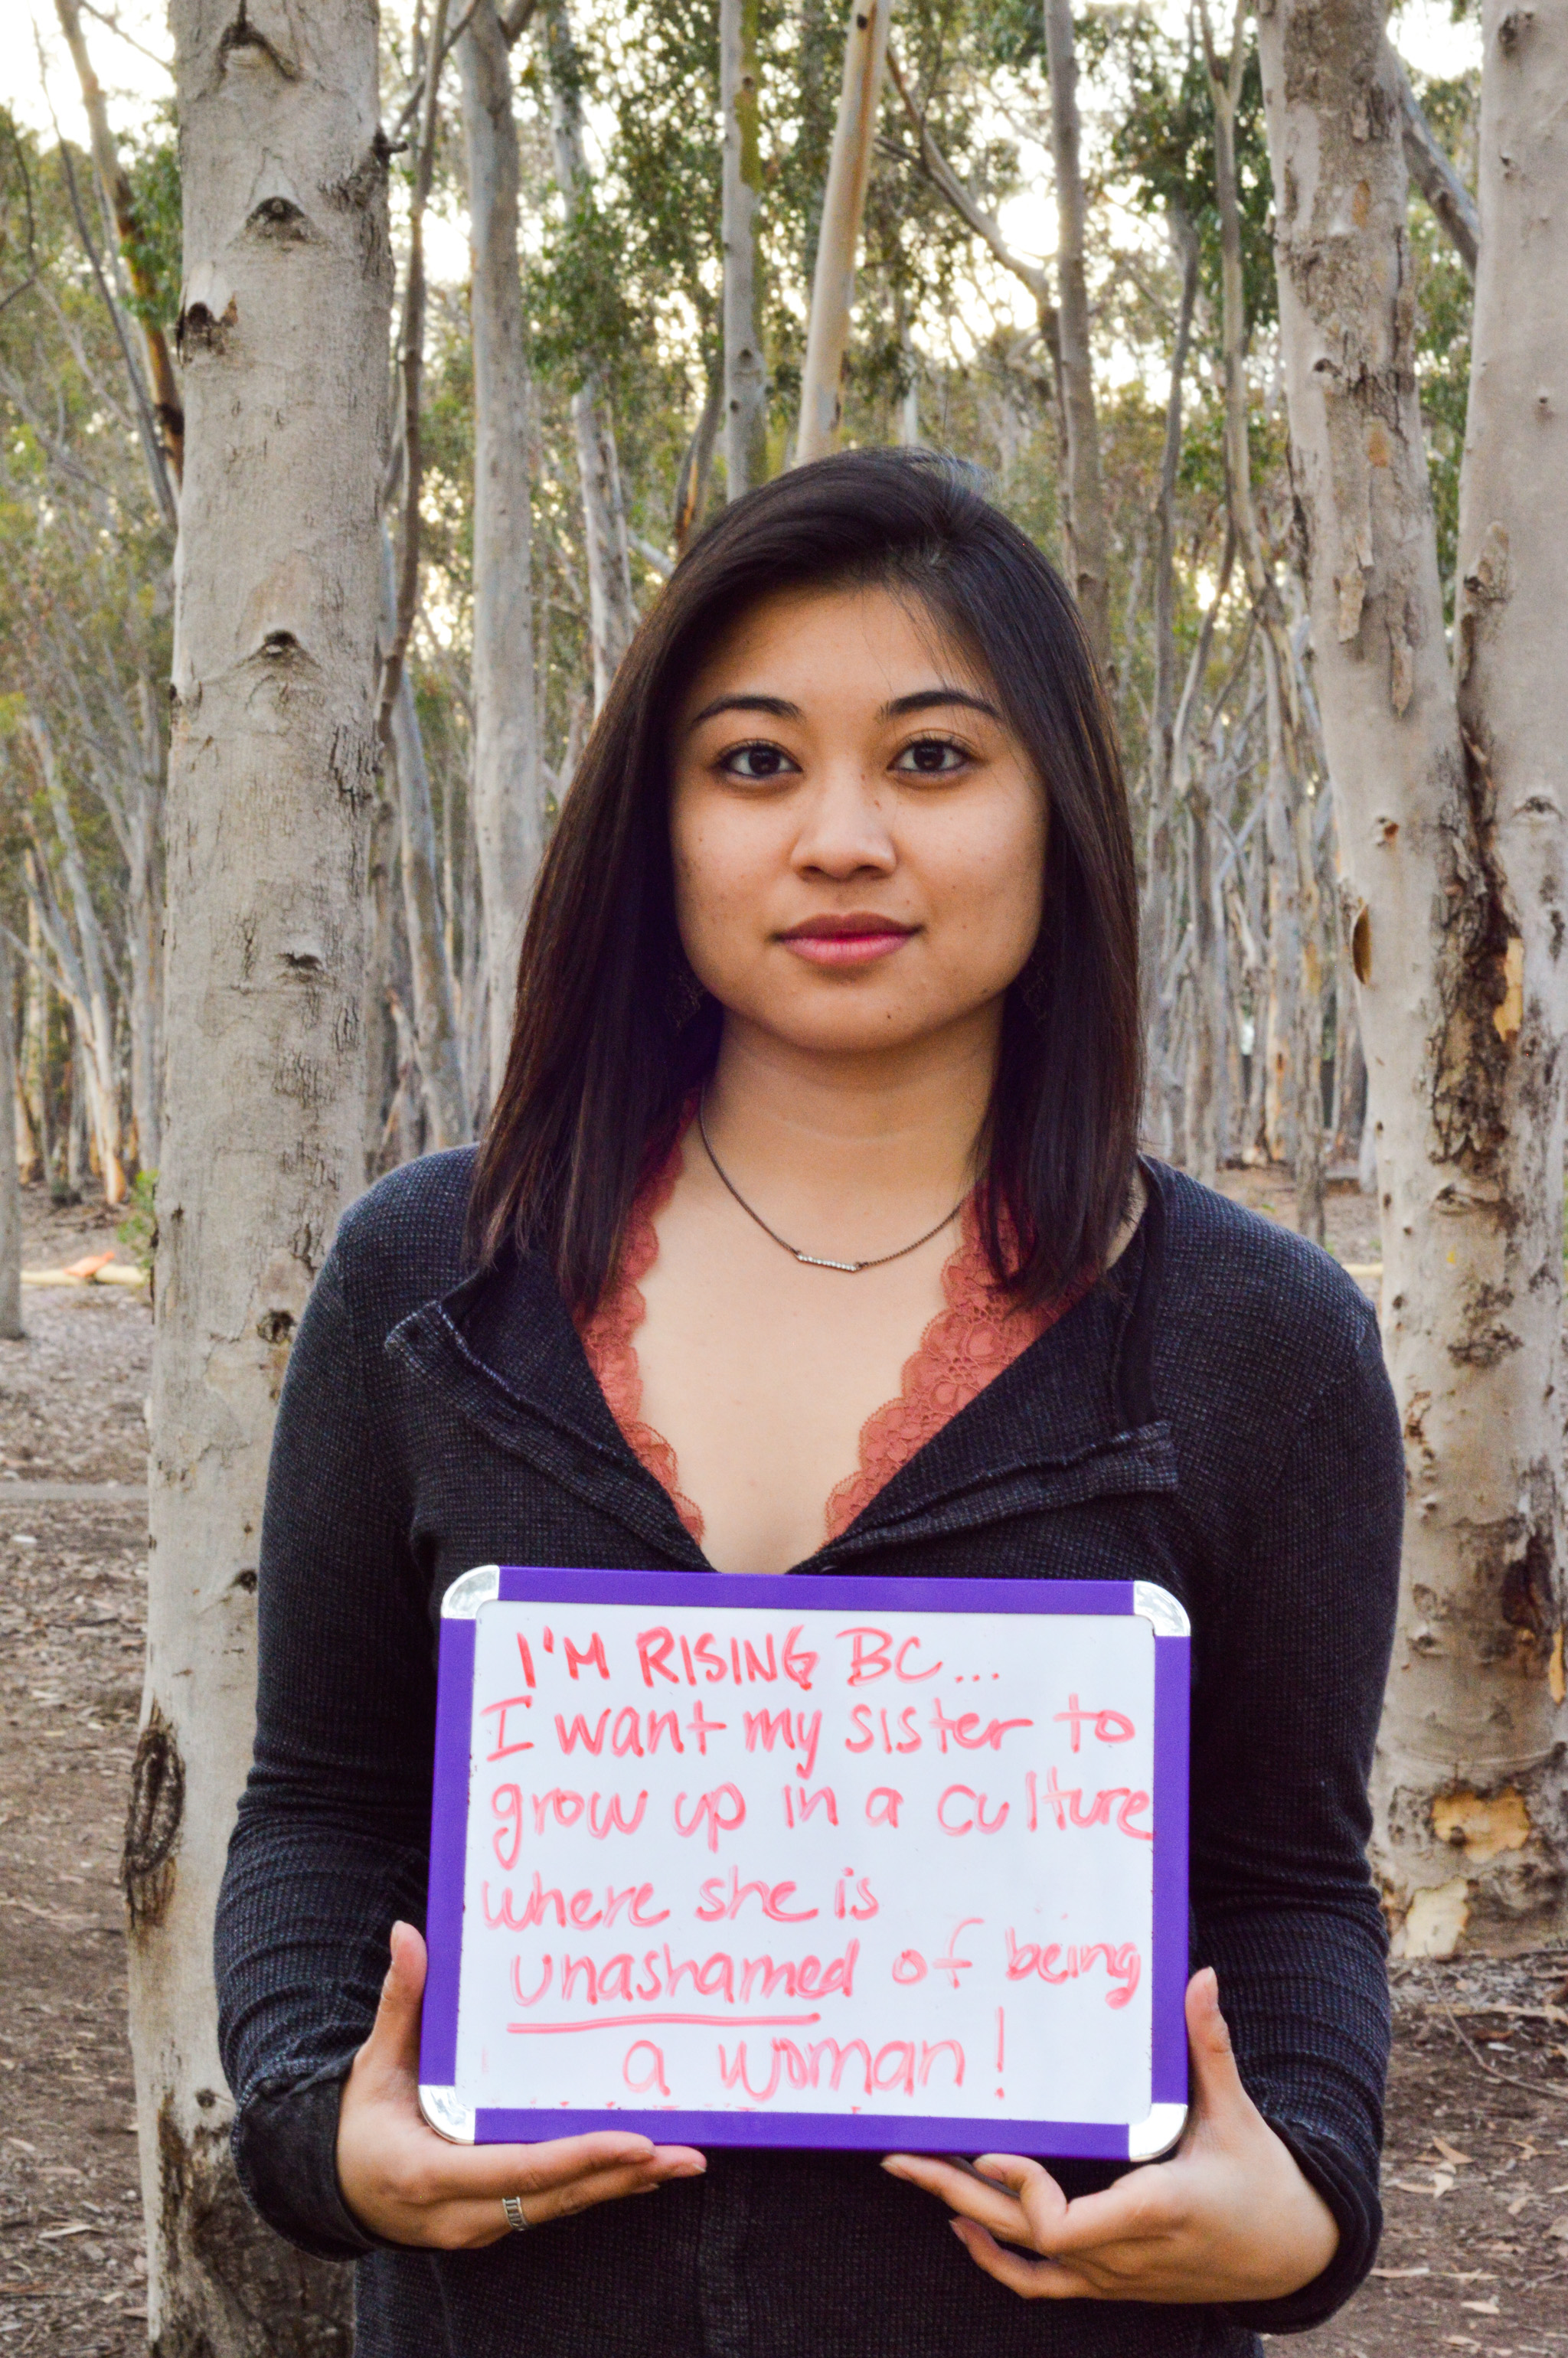 I'M RISING BC...
I want my sister to
grow up in a culture
where she is
unashamed of being
a woman!